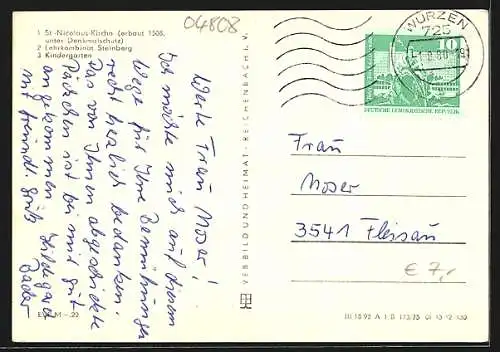 04808
1 St.-Nicolaus-Kirche (erbaut 1508,
unter Denkmalschutz)
2 Lehrkombinat Steinberg
3 Kindergarten
Werte Frau Moser!
Ich möchte mich auf diesem
Wege für Ihre Bemühungen
recht herzlich bedanken.
Das von Ihnen abgeschickte
Päckchen ist bei mir gut
angekommen
mit freundl. Grüß Hildegard
Bader
VEB BILD UND HEIMAT · REICHENBACH I. V.
WURZEN
725
10
DEUTSCHE DEMOKRATISCHE REPUBLIK
Frau
Moser
3541 Fleissau
€ 7,-